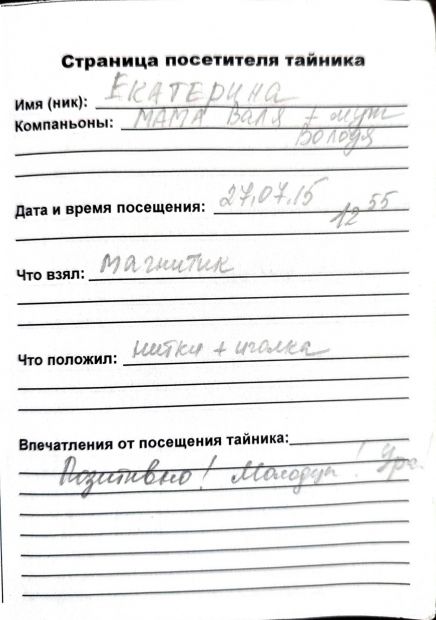 Страница посетителя тайника
Имя (ник): ЕКАТЕРИНА
Компаньоны: МАМА Валя + муж
Володя
Дата и время посещения: 27.07.15 12 55
Что взял: Магнитик
Что положил: нитки + иголка
Впечатления от посещения тайника:
Позитивно! Молодцы! Ура!